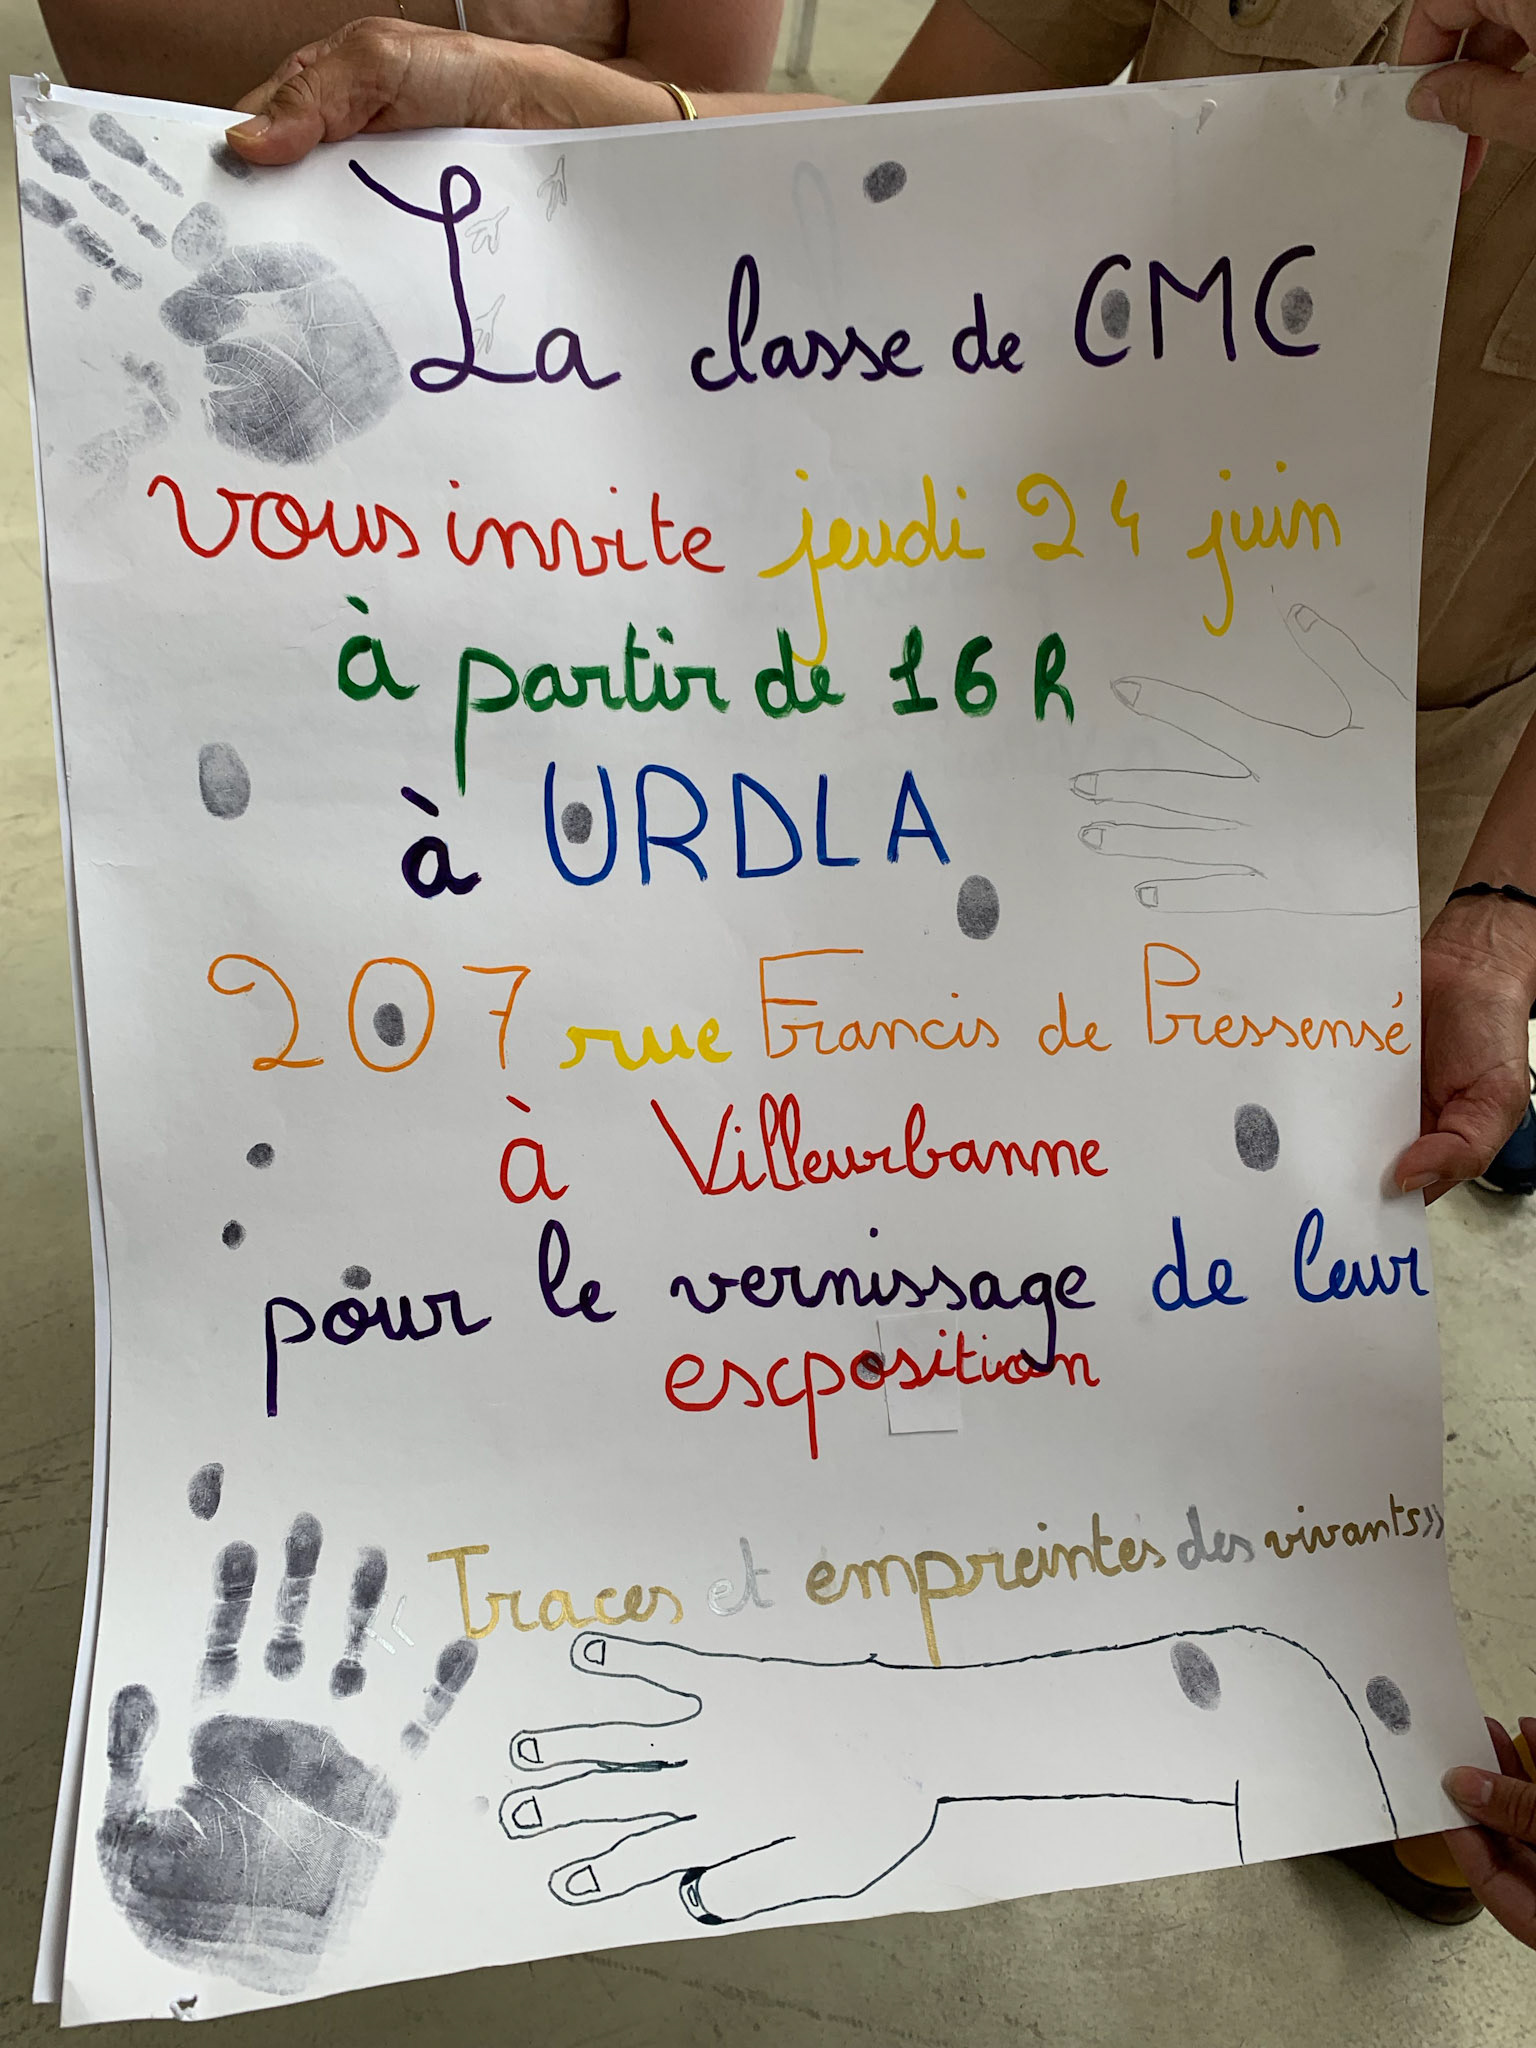 La classe de CMC
vous invite jeudi 24 juin
à partir de 16 h
à URDLA
207 rue Francis de Pressensé
à Villeurbanne
pour le vernissage de leur
exposition
« Traces et empreintes des vivants »